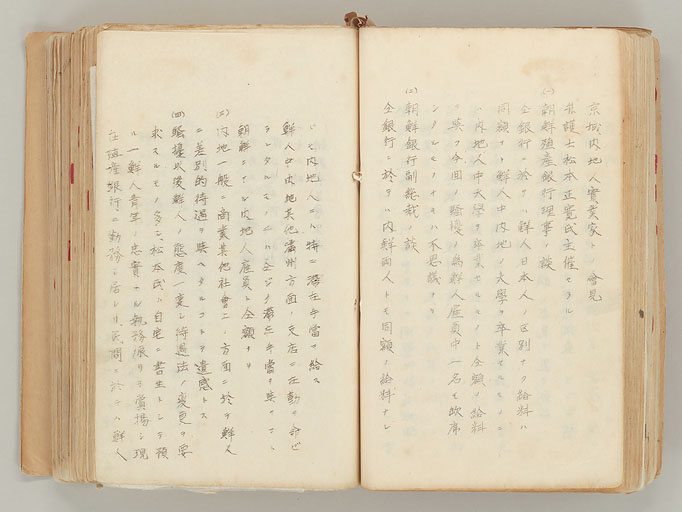 京城内地人實業家トノ會見
弁護士松本正寛氏主催セラル
(一)朝鮮殖産銀行理事ノ談
全銀行ニ於テハ鮮人日本人ノ区別ナク給料ハ
同額ナリ鮮人中内地ノ大學ヲ卒業セルモノハ
内地人中大學ヲ卒業セルモノト全額ノ給料
ヲ與フ今回ノ騒擾ノ為鮮人雇員中一名モ欠席
シタルモノナキハ不思議ナリ
(二)朝鮮銀行副総裁ノ談
全銀行ニ於テハ内鮮両人トモ同額ノ給料ナレ
ドモ内地人ニハ特ニ滞在手當ヲ給ス
鮮人中内地其他満州方面ノ支店ニ在勤ヲ命ゼ
ラレタルモノニハ全ジク滞在手當ヲ與フコレ
朝鮮ニ於ル内地人雇員ト全額ナリ
(三)内地一般ニ商業其他社會ニノ方面ニ於テ鮮人
ニ差別的待遇ヲ與ヘタルコトヲ遺感トス
(四)騒擾以後鮮人ノ態度一変シ待遇法ノ変更ヲ要
求スルモノ多シ、松本氏ハ自宅ニ書生トシテ預
ル一鮮人青年ノ忠實ナル執務振リヲ賞揚シ現
在殖産銀行ニ勤務シ居レリ、民間ニ於テハ鮮人